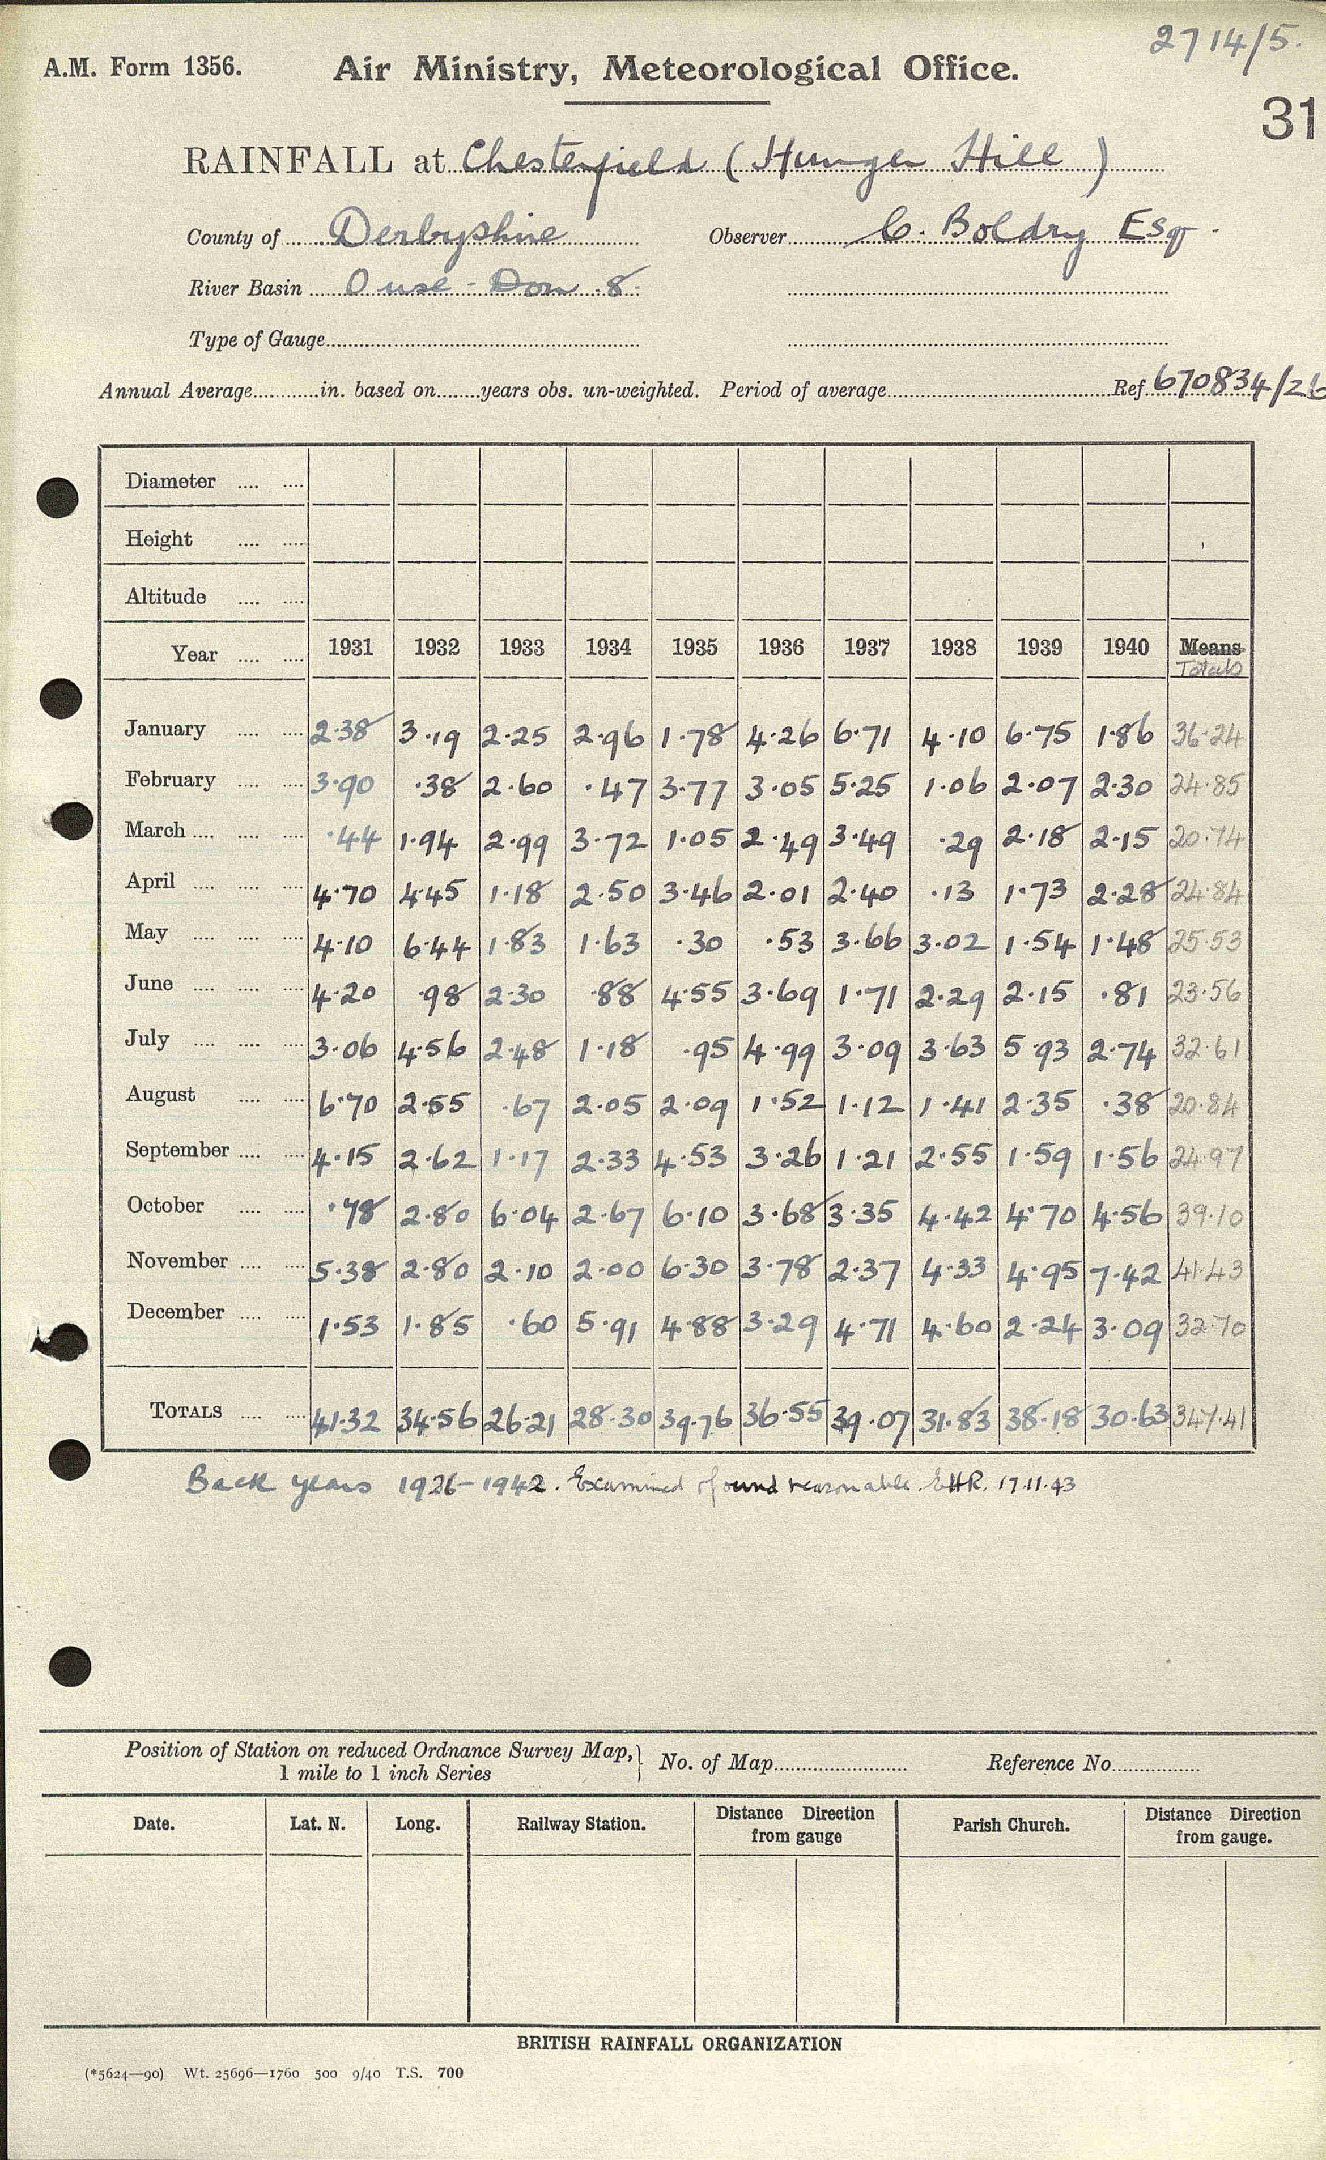 2714/5.
A.M. Form 1356. Air Ministry, Meteorological Office.
31
RAINFALL at Chesterfield (Hunger Hill)
County of Derbyshire Observer C. Boldry Esq.
River Basin Ouse - Don 8.
Type of Gauge
Annual Average in. based on years obs. un-weighted. Period of average Ref 670834/26
Diameter
Height
Altitude
Year 1931 1932 1933 1934 1935 1936 1937 1938 1939 1940 Means
Totals
January 2.38 3.19 2.25 2.96 1.78 4.26 6.71 4.10 6.75 1.86 36.24
February 3.90 .38 2.60 .47 3.77 3.05 5.25 1.06 2.07 2.30 24.85
March .44 1.94 2.99 3.72 1.05 2.49 3.49 .29 2.18 2.15 20.74
April 4.70 4.45 1.18 2.50 3.46 2.01 2.40 .13 1.73 2.28 24.84
May 4.10 6.44 1.83 1.63 .30 .53 3.66 3.02 1.54 1.48 25.53
June 4.20 .98 2.30 .88 4.55 3.69 1.71 2.29 2.15 .81 23.56
July 3.06 4.56 2.48 1.18 .95 4.99 3.09 3.63 5.93 2.74 32.61
August 6.70 2.55 .67 2.05 2.09 1.52 1.12 1.41 2.35 .38 20.84
September 4.15 2.62 1.17 2.33 4.53 3.26 1.21 2.55 1.59 1.56 24.97
October .78 2.80 6.04 2.67 6.10 3.68 3.35 4.42 4.70 4.56 39.10
November 5.38 2.80 2.10 2.00 6.30 3.78 2.37 4.33 4.95 7.42 41.43
December 1.53 1.85 .60 5.91 4.88 3.29 4.71 4.60 2.24 3.09 32.70
TOTALS 41.32 34.56 26.21 28.30 39.76 36.55 39.07 31.83 38.18 30.63 347.41
Back years 1926-1942. Examined found reasonable. EHR. 17.11.43
Position of Station on reduced Ordnance Survey Map, No. of Map Reference No.
1 mile to 1 inch Series
Date. Lat. N. Long. Railway Station. Distance Direction from gauge Parish Church. Distance Direction from gauge.
BRITISH RAINFALL ORGANIZATION
(*5624—90) Wt. 25696—1760 500 9/40 T.S. 700